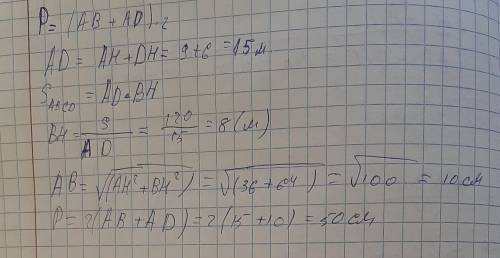 P = (AB + AD)·2
AD = AH + DH = 9+6 = 15 м
S ABCD = AD·BH
BH = S/AD = 120/15 = 8 (м)
AB = √(AH² + BH²) = √(36 + 64) = √100 = 10 см
P = 2(AB + AD) = 2(15 + 10) = 50 см